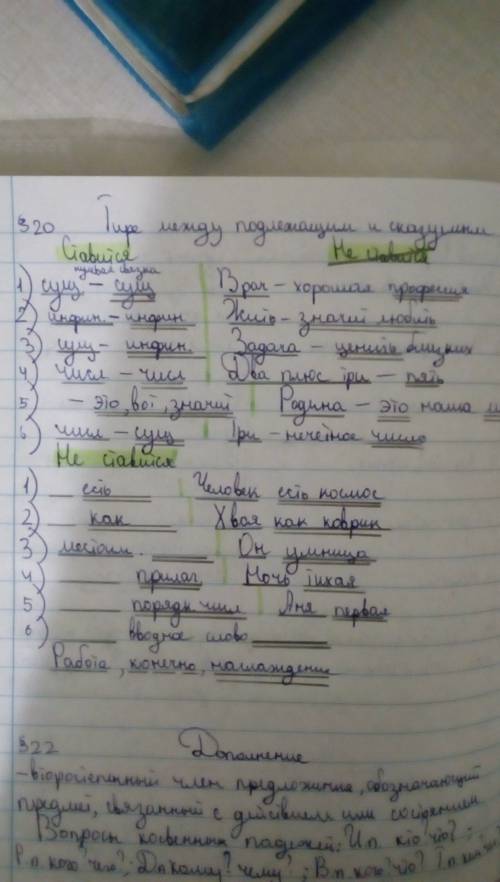 §20 Тире между подлежащим и сказуемым
Ставится Не ставится
нулевая связка
1) сущ. – сущ Врач – хорошая профессия
2) инфин. – инфин Жить – значит любить
3) сущ – инфин. Задача – ценить близких
4) числ – числ Два плюс три – пять
5) – это, вот, значит Родина – это наша
6) числ – сущ Три – нечетное число
Не ставится
1) есть Человек есть космос
2) как Хвоя как коврик
3) местоим. Он умница
4) прилаг Ночь тихая
5) порядк числ Аня первая
6) вводное слово
Работа, конечно, наслаждение
§22 Дополнение
– второстепенный член предложения, обозначающий
предмет, связанный с действием или состоянием
Вопросы косвенных падежей: И.п кто? что?;
Р.п кого? чего?; Д.п кому? чему?; В.п кого? что? Т.п кем?